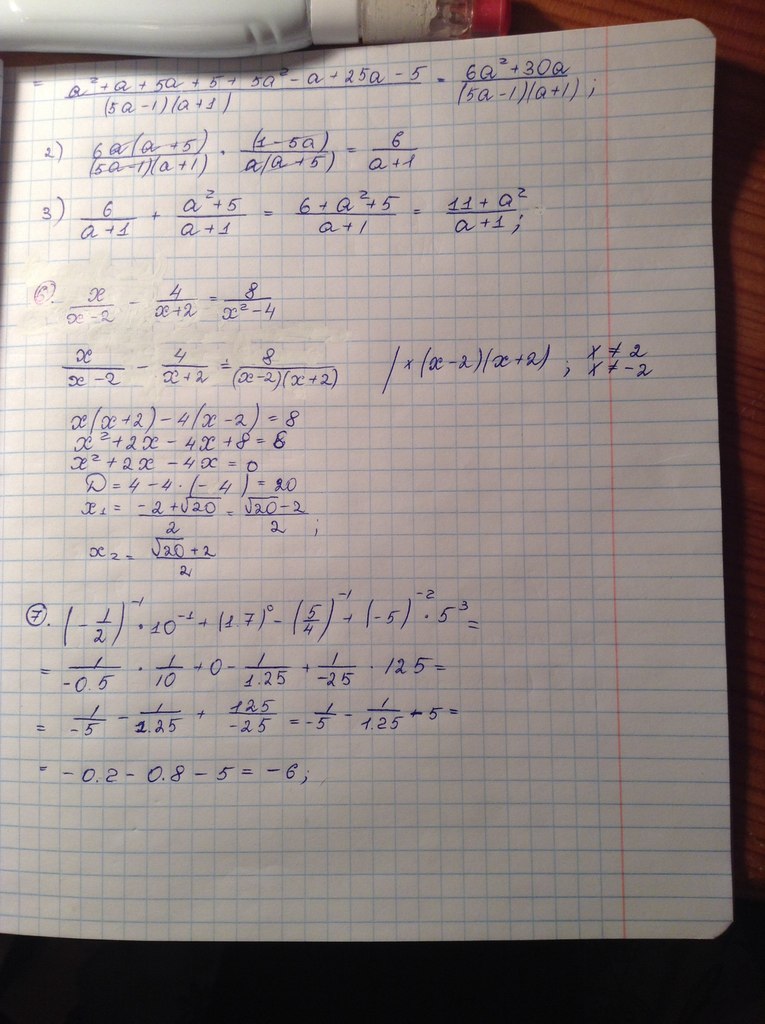 = (a² + a + 5a + 5 + 5a² - a + 25a - 5)/((5a-1)(a+1)) = (6a² + 30a)/((5a-1)(a+1));
2) (6a(a+5))/((5a-1)(a+1)) · (1-5a)/(a(a+5)) = 6/(a+1)
3) 6/(a+1) + (a²+5)/(a+1) = (6+a²+5)/(a+1) = (11+a²)/(a+1);
6. x/(x-2) - 4/(x+2) = 8/(x²-4)
x/(x-2) - 4/(x+2) = 8/((x-2)(x+2)) / × (x-2)(x+2) ; x ≠ 2 x ≠ -2
x(x+2) - 4(x-2) = 8
x² + 2x - 4x + 8 = 8
x² + 2x - 4x = 0
D = 4 - 4 · (-4) = 20
x₁ = (-2 + √20)/2 = (√20 - 2)/2 ;
x₂ = (√20 + 2)/2
7. (-1/2)⁻¹ · 10⁻¹ + (1.7)⁰ - (5/4)⁻¹ + (-5)⁻² · 5³ =
= 1/(-0.5) · 1/10 + 0 - 1/1.25 + 1/(-25) · 125 =
= 1/(-5) - 1/1.25 + 125/(-25) = 1/(-5) - 1/1.25 - 5 =
= -0.2 - 0.8 - 5 = -6;